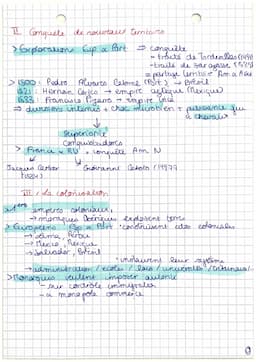 II Conquête de nouveaux territoires
> Explorations Esp & Port ⇒ conquête
- traité de Tordesillas (1494)
- traité de Saragosse (1529)
= partage
> 1500 : Pedro Alvares Cabral (Port) → Brésil
1521 : Hernan Cortes → empire aztèque (Mexique)
1533 : Francisco Pizarro → empire Inca
⇒ divisions internes + choc microbien + puissance
à cheval
Supériorité
conquistadors
> France & RU : conquête Am N
Jacques Cartier Giovanni Caboto (1497)
(1534)
III / La colonisation
> 1ers empires coloniaux :
→ monarques ibériques explorent terres
> Européens Esp & Port construisent cités coloniales
→ Lima, Pérou
→ Mexico, Mexique
→ Salvador, Brésil
· introduisent leur système
→ administration / écoles / lois / universités /
> Monarques veulent imposer autorité
- sur contrôle
- monopole commerce